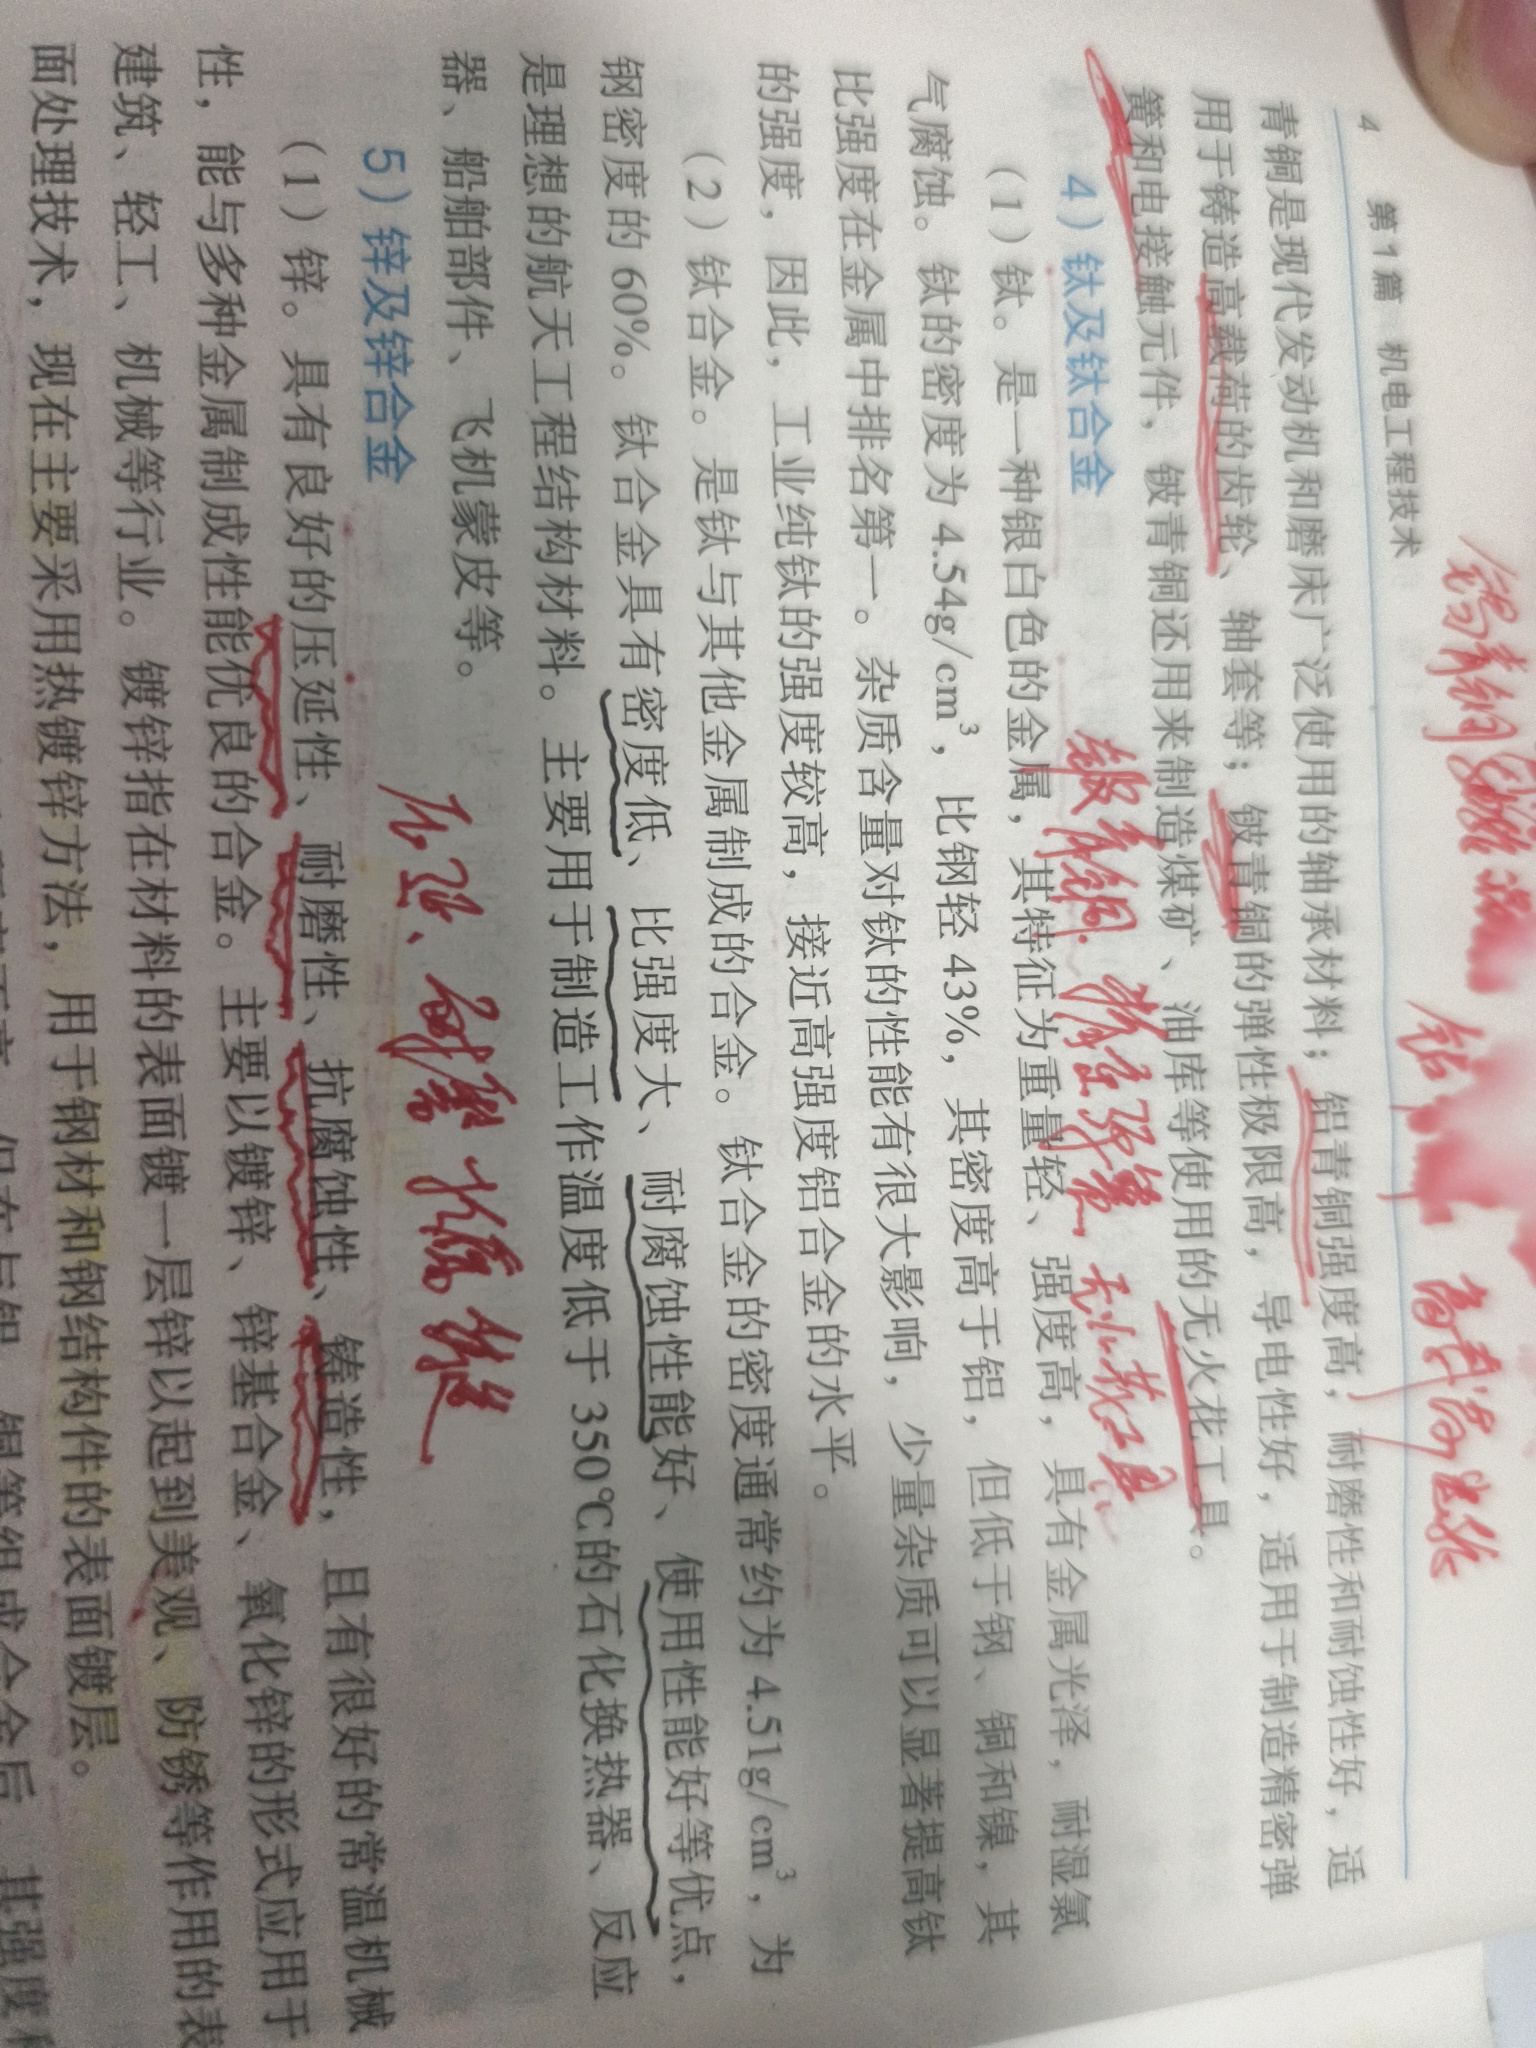 4 第1篇 机电工程技术
青铜是现代发动机和磨床广泛使用的轴承材料；铝青铜强度高，耐磨性和耐蚀性好，适
用于铸造高载荷的齿轮、轴套等；铍青铜的弹性极限高，导电性好，适用于制造精密弹
簧和电接触元件，铍青铜还用来制造煤矿、油库等使用的无火花工具。
铍青铜 精密弹簧 无火花工具
4）钛及钛合金
（1）钛。是一种银白色的金属，其特征为重量轻、强度高，具有金属光泽，耐湿氯
气腐蚀。钛的密度为 4.54g/cm³，比钢轻 43%，其密度高于铝，但低于钢、铜和镍，其
比强度在金属中排名第一。杂质含量对钛的性能有很大影响，少量杂质可以显著提高钛
的强度，因此，工业纯钛的强度较高，接近高强度铝合金的水平。
（2）钛合金。是钛与其他金属制成的合金。钛合金的密度通常约为 4.51g/cm³，为
钢密度的 60%。钛合金具有密度低、比强度大、耐腐蚀性能好、使用性能好等优点，
是理想的航天工程结构材料。主要用于制造工作温度低于 350℃的石化换热器、反应
器、船舶部件、飞机蒙皮等。
5）锌及锌合金
（1）锌。具有良好的压延性、耐磨性、抗腐蚀性、铸造性，且有很好的常温机械
性，能与多种金属制成性能优良的合金。主要以镀锌、锌基合金、氧化锌的形式应用于
建筑、轻工、机械等行业。镀锌指在材料的表面镀一层锌以起到美观、防锈等作用的表
面处理技术，现在主要采用热镀锌方法，用于钢材和钢结构件的表面镀层。